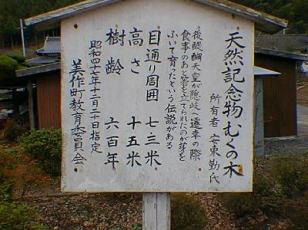 天然記念物むくの木
所有者 安東勤氏
後醍醐天皇が隠岐へ遷幸の際
食事のあと箸を立てられたのが芽を
ふいて育ったという伝説がある
目通り周囲 七.三米
高さ 十五米
樹齢 六百年
昭和四七年十二月二十日指定
美作町教育委員会